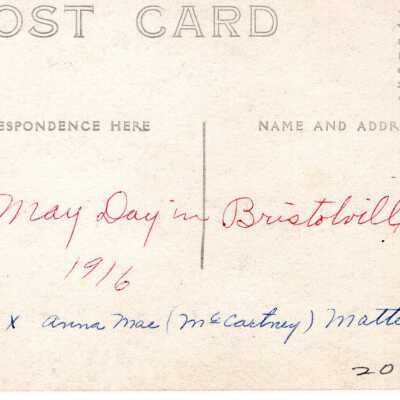 OST CARD
ESPONDENCE HERE
NAME AND ADDR
May Day in Bristolvill
1916
x Anna Mae (McCartney) Matte
20